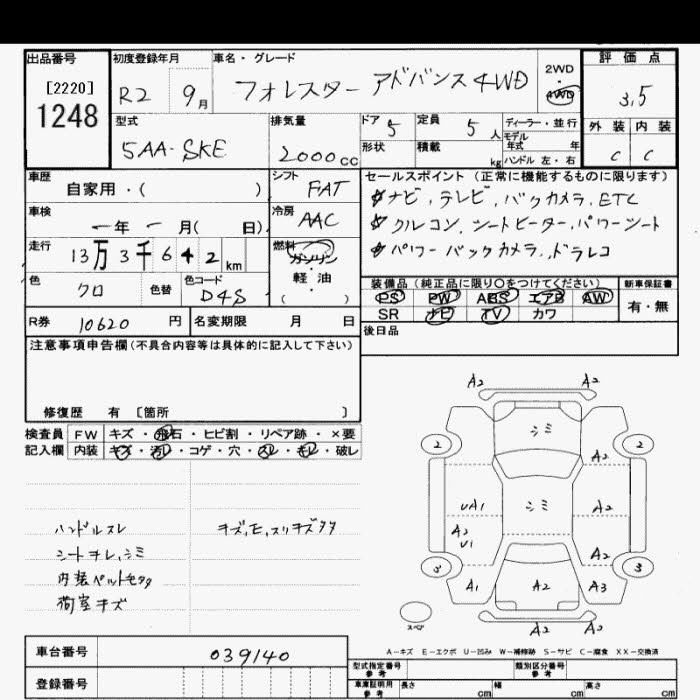 出品番号 初度登録年月 車名・グレード 評価点
[2220] R2 9月 フォレスター アドバンス4WD 2WD・4WD 3.5
1248
型式 排気量 ドア 5 定員 5人 ディーラー・並行 外装 内装
5AA-SKE 2000cc 形状 積載 kg モデル年式 年 C C
ハンドル 左・右
車歴 自家用・( ) シフト FAT セールスポイント (正常に機能するものに限ります)
ナビ,テレビ,バックカメラ,ETC
車検 ー年ー月( 日) 冷房 AAC クルコン,シートヒーター,パワーシート
走行 13万3千642km 燃料 ガソリン・軽油 ( ) パワーバックカメラ,ドラレコ
色 クロ 色替 色コード D4S 装備品 (純正品に限り○をつけてください) 新車保証書
PS PW ABS エアB AW 有・無
R券 10620円 名変期限 月 日 SR ナビ TV カワ
注意事項申告欄(不具合内容等は具体的に記入して下さい) 後日品
修復歴 有 [箇所 ]
検査員記入欄 FW キズ・飛石・ヒビ割・リペア跡・×要
内装 キズ・汚レ・コゲ・穴・スレ・キレ・破レ
A2 A2
シミ
2 2
A2
UA1 シミ A2
A2
U1 A2
3 3
A1 A2 A3
スペア A2 A2
ハンドルスレ
シートキレ,シミ
荷室キズ
A-キズ E-エクボ U-凹み W-補修跡 S-サビ C-腐食 XX-交換済
車台番号 039140 型式指定番号 参考 類別区分番号 参考
登録番号 車庫証明用 参考 長さ cm 幅 cm 高さ cm